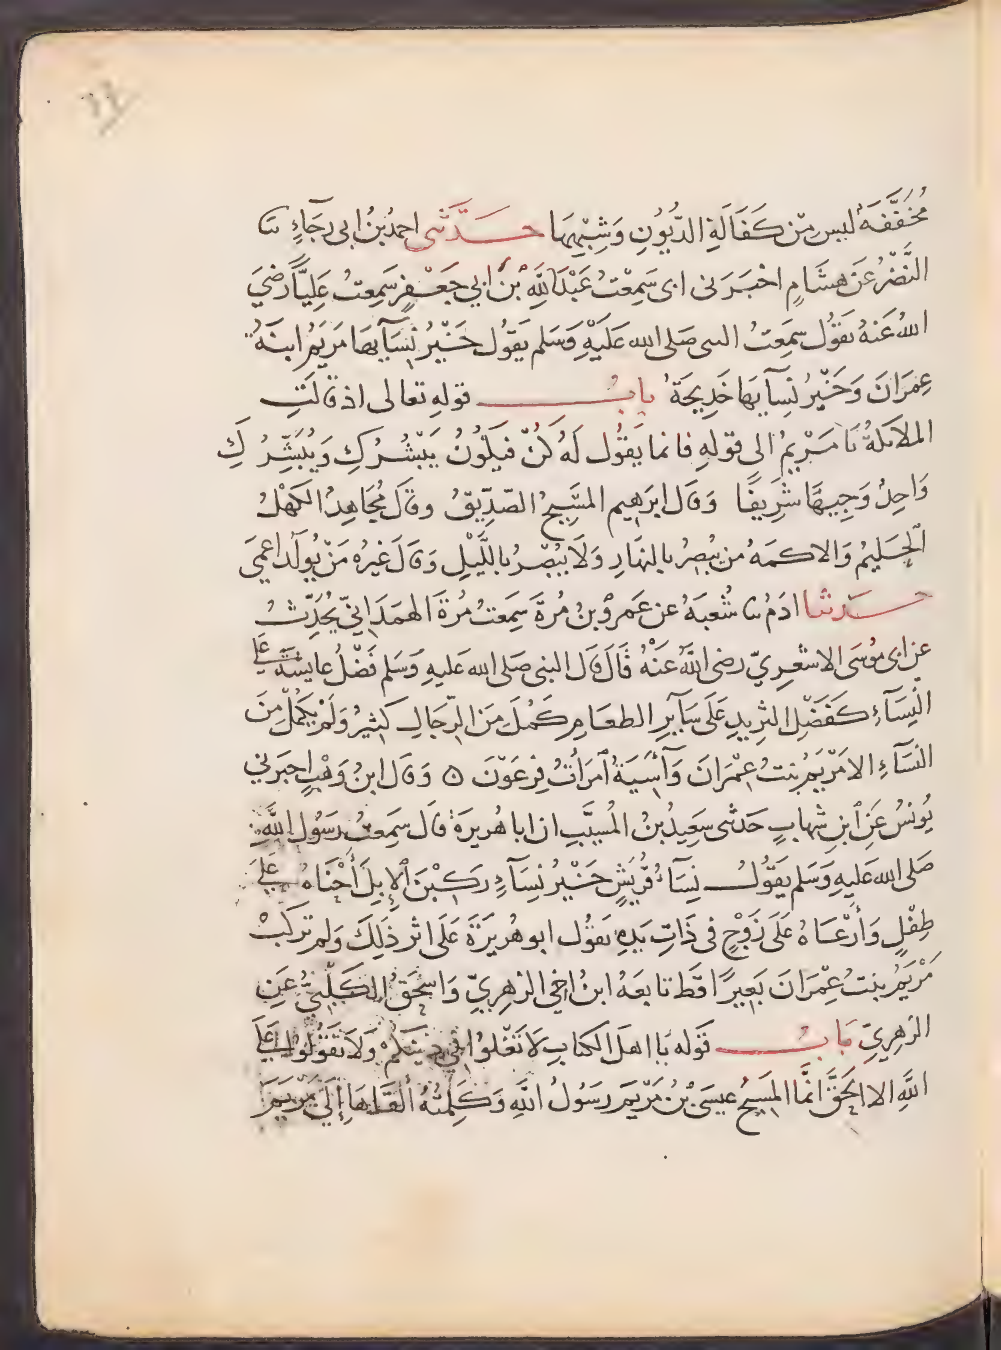 مُخَفَّفَةً ليس مِنْ كَفَالَةِ الدُّيُونِ وَشِبْهِهَا حَدَّثَنِي احمدُ بنُ ابى رجَآءٍ ثنا
النَّضْرُ عَن هشَامٍ اخبَرَنى ابى سَمِعْتُ عَبْدَ اللَّهِ بْنَ ابي جَعْفرٍ سَمِعتُ عَلِيًّا رَضيَ
اللهُ عَنهُ يقَوُل سمِعَتُ النبى صَلى الله عَلَيْهِ وَسَلم يَقوُل خَيْرُ نِسَآيهَا مَريَمُ ابنَةُ
عِمرَانَ وَخَيْرُ نِسَآيهَا خَدِيجَةُ بابُ قولهِ تعالى اذ قالَتِ
الملايكةُ يَا مَرْيمُ الى قولهِ فانما يَقوُل لَهُ كُنْ فيَكُونُ يَبْشُرُكِ وَيُبَشِّرُكِ
وَاحِدٌ وَجِيهًا شَرِيفًا وَقال ابرَهيم المسِيحُ الصّدِّيقُ وقالَ مُجَاهِدٌ الكَهْلُ
الحَلِيمُ وَالاكمَهُ من يُبصِرُ بالنهَارِ وَلَا يُبْصِرُ باللَّيْلِ وَقالَ غيرُه مَنْ يُولَد اعمَى
حَدثنا ادَمُ ثنا شُعبَهُ عن عَمرِو بن مُرةَ سَمِعتُ مُرةَ الهمَدَانيَّ يُحَدِّثُ
عن ابى موُسَى الاشعرِيّ رضى اللَّهُ عَنْهُ قَالَ قال النبى صَلى الله عَليهِ وَسَلم فَضْلُ عايشَةَ عَلَى
النِّسَآءِ كفَضْلِ الثرِيدِ عَلَى سَآيِرِ الطعَامِ كمُلَ مِنَ الرّجَالِ كثيرٌ وَلَمْ يَكْمُلْ مِنَ
النسَآءِ الا مَرْيَمُ بنتُ عِمْرَانَ وَآسِيَةُ امرَاتُ فِرعَوْنَ ۝ وَقال ابنُ وَهْبٍ اخبرَني
يُونسُ عَنِ ابنِ شِهابٍ حَدثنى سَعِيدُ بنُ المُسيَّبِ ان ابا هُريرَةَ قَال سَمِعتُ رَسُولَ اللَّهِ
صَلى الله عَليهِ وَسَلم يَقوُلُ نِسَآءُ قُرَيْشٍ خَيْرُ نِسَآءٍ رَكِبْنَ الاِبِلَ أَحْنَاهُ عَلَى
طِفْلٍ وَأَرْعَاهُ عَلَى زَوْجٍ فى ذَاتِ يَدِهِ يَقوُل ابو هُرَيْرَةَ عَلَى اثرِ ذَلِكَ وَلم تركَبْ
مَرْيَمُ بنتُ عِمْرَانَ بَعِيرًا قَط تابعَهُ ابنُ اخِي الزهرِيّ وَاسحَقُ الكَلْبيُّ عَنِ
الزهرِيّ بَابُ قَوله يا اهلَ الكتابِ لا تَغْلوا فِي دِينكُمْ وَلَا تَقُولُوا عَلَى
اللَّهِ الا الحَقَّ انَّمَا المسِيحُ عيسَى بْنُ مَرْيَم رَسُولُ اللَّهِ وَكَلِمَتُهُ القَاهَا إلَى مَرْيَمَ